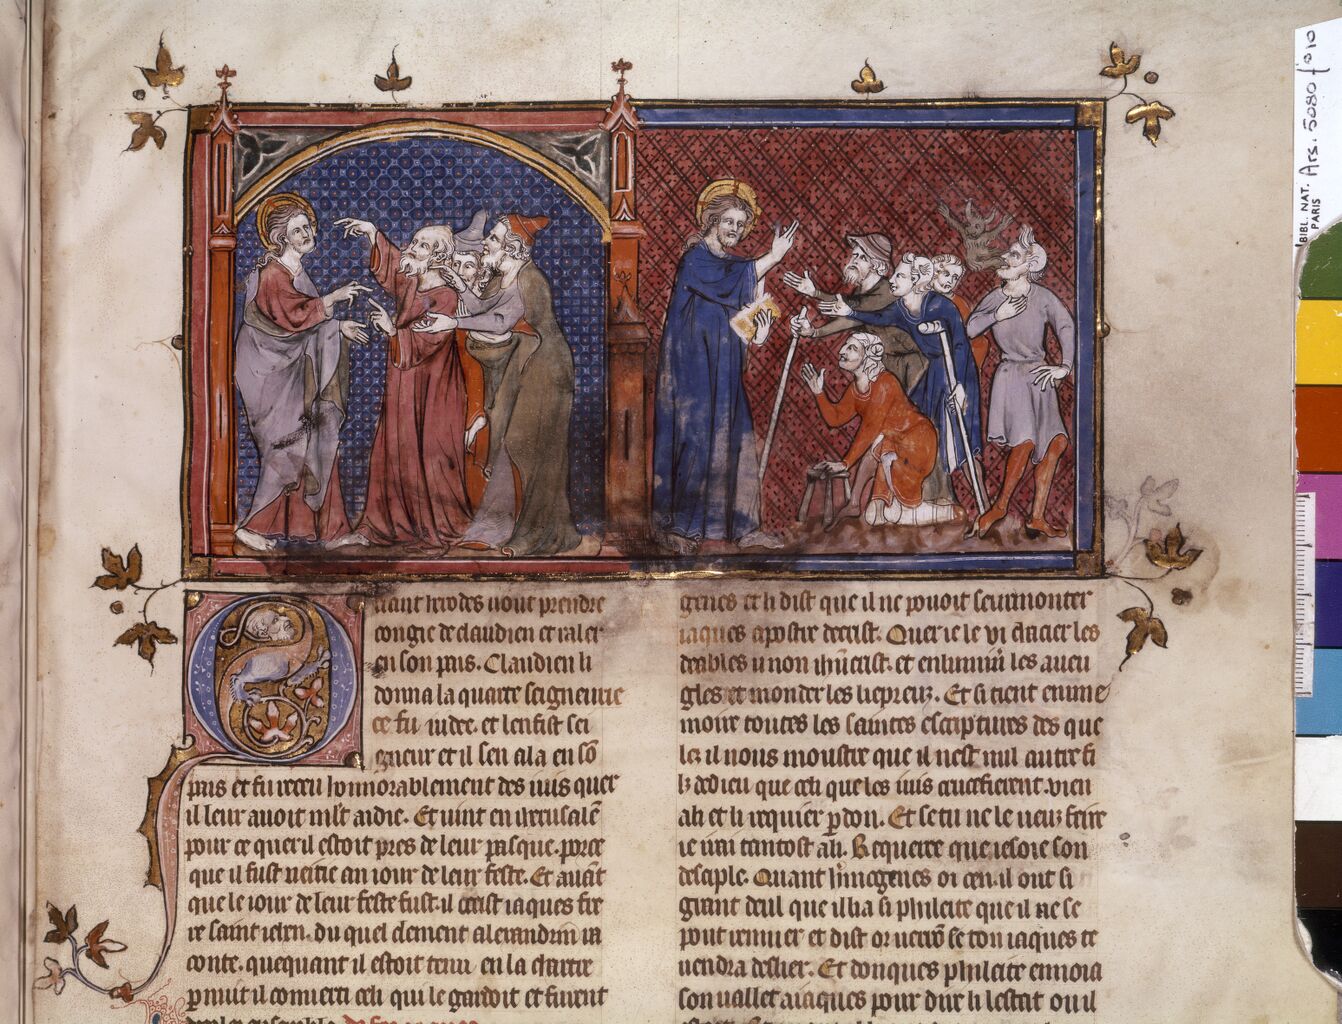 uant herodes uout prendre
congie de claudien et raler
en son pais. Claudien li
donna la quarte seigneurie
ce fu iudee. et lenfist sei
gneur et il sen ala en sõ
pais et fu receu honnorablement des iuis quer
il leur auoit mlt aidie. Et uint en iherusalẽ
pour ce quer il estoit pres de leur pasque. porce
que il fust ueitie an iour de leur feste. Et auãt
que le iour de leur feste fust. il occist iaques fre
re saint iehen. du quel clement alexandrin ra
conte. que quant il estoit tenu en la chartre
p nuit il conuerti celi qui le gardoit et furent
genes et li dist que il ne pouoit seurmonter
iaques apostre decrist. Quer ie le vi chacier les
deables u non ihũcrist. et enluminer les aueu
gles et monder les liepreux. Et si tient en me
moire toutes les saintes escriptures des que
les il nous moustre que il nest nul autre fi
lz de dieu que celi que les iuis crucefierent. vien
ali et li requier pdon. Et se tu ne le ueuz feire
ie irai tantost ali. Requerre que ie soie son
desciple. Quant hmogenes oi cen. il ont si
grant deul que il lia si philecte que il ne se
pout remuer et dist or uerrõ se ton iaques te
uendra deslier. Et donques philecte enuoia
son uallet a iaques pour dire li lestat ou il
BIBL. NAT.
PARIS
Ars. 5080 f. 010